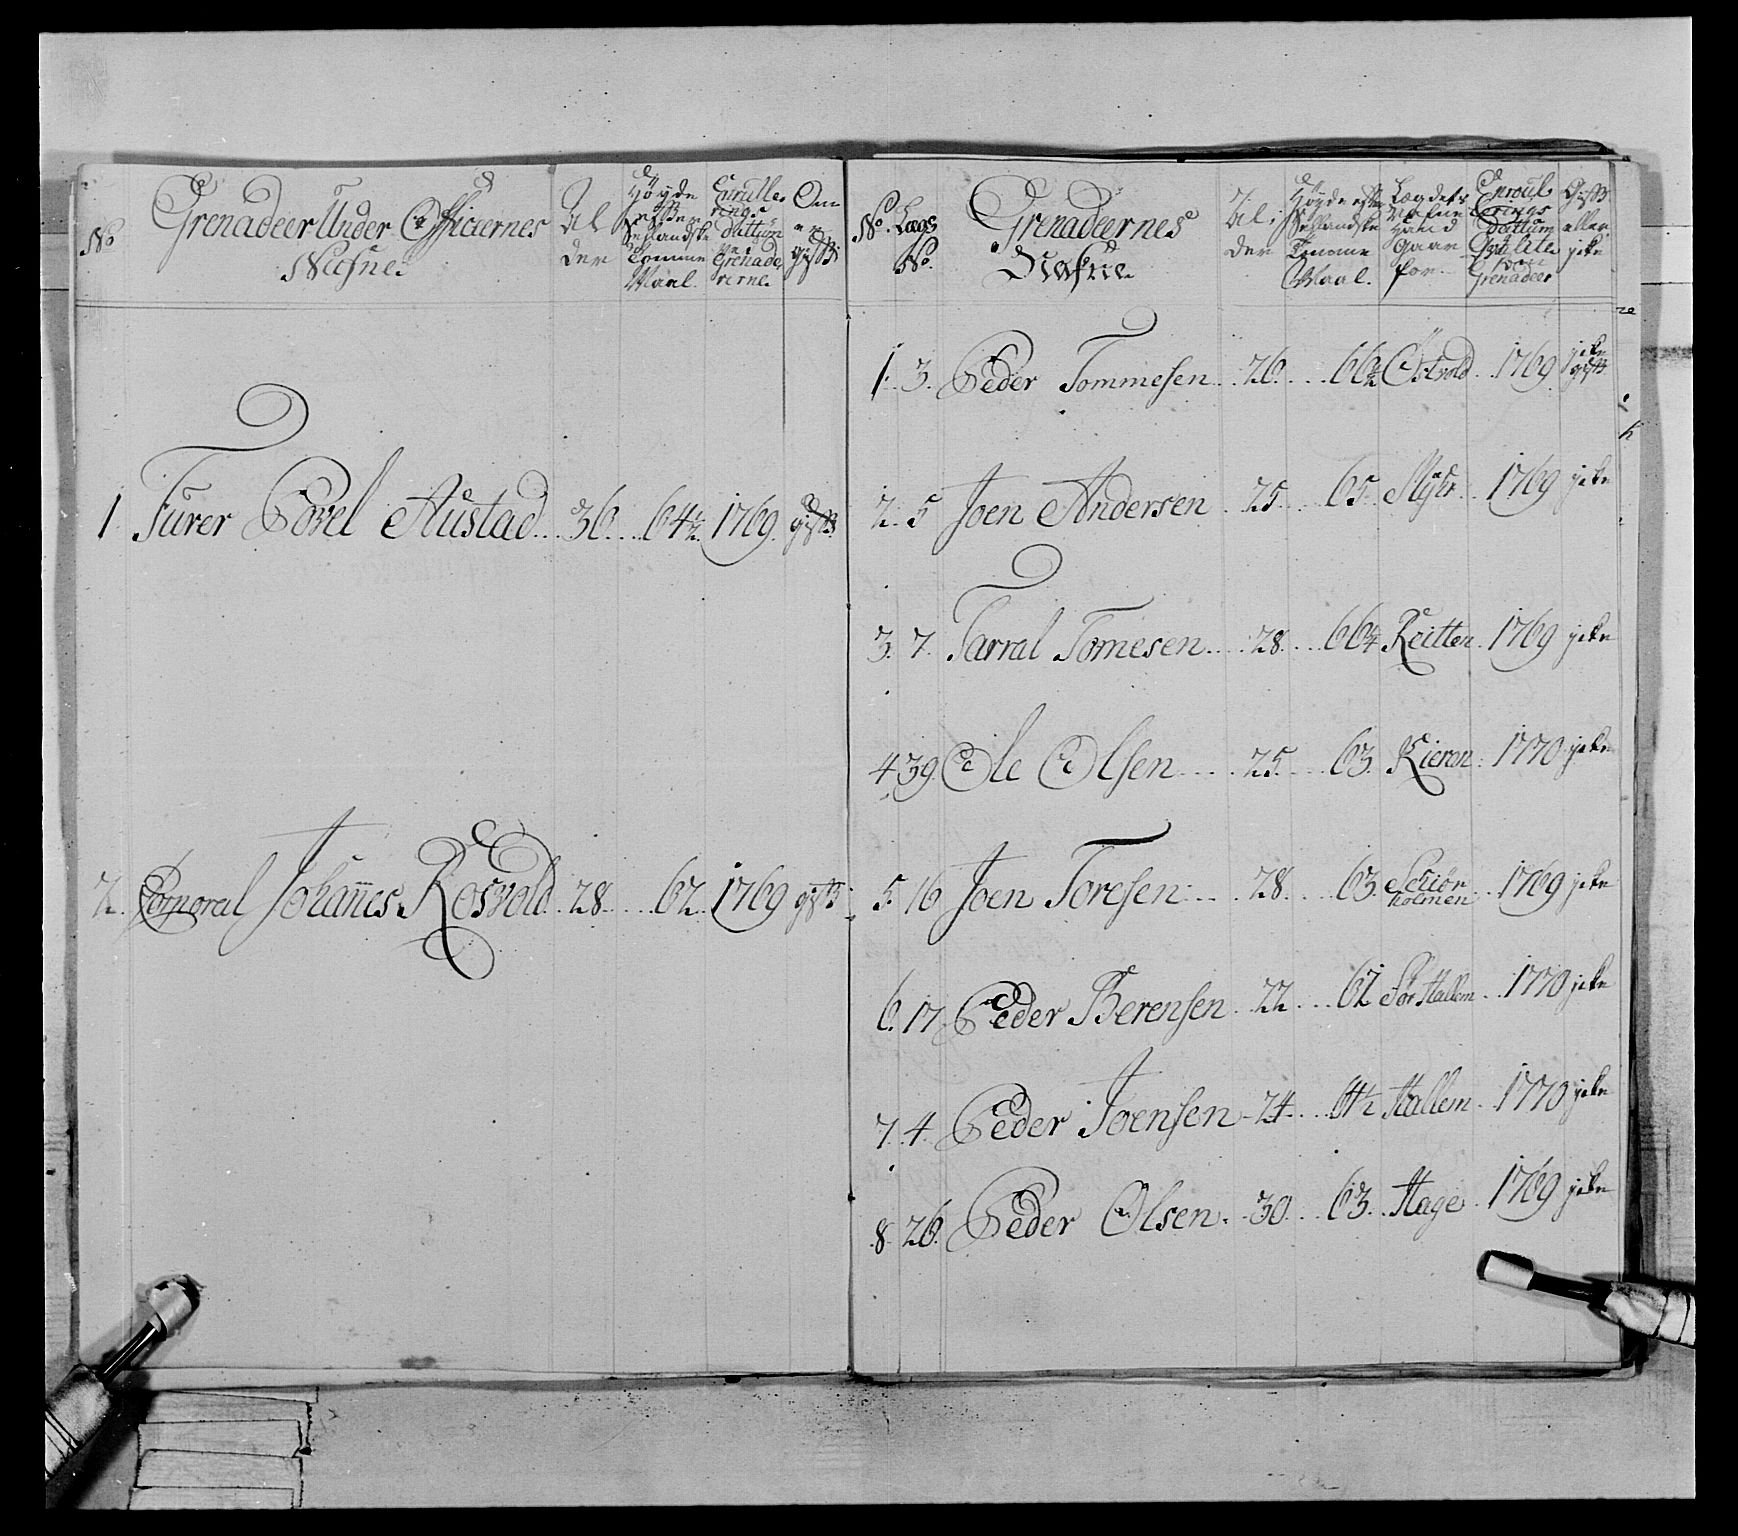 No
Grenadeer Under Officiernes
Nafne
Al
der
Høyde
efter
Sellandske
Tomme
Maal.
Enrulle
rings
Dattum
Grenade
rerne.
Om
gift
1 Fürer Povel Aüstad 36 64½ 1769 gift
2. Corporal Johannes Rosvold 28 62 1769 gift
No. Lægs
No.
Grenadeernes
Nafne
Al
der
Høyde efter
Sellandske
Tomme
Maal.
Lægdets
Nafne
Gaar
for.
Enroul
rings
Dattum
som
Grenadeer
Gift
eller
icke
1. 3. Peder Tommesen 26. 66½ Østvold 1769 icke gift
2. 5 Joen Andersen 25 65 Myhr 1769 icke
3. 7. Tarral Tomesen 28. 66¼ Reitten 1769 icke
4 39 Ole Olsen 25. 63. Kieran 1770 icke
5. 16 Joen Toresen 28. 63. Schiør
holmen 1769 icke
6. 17 Peder Berensen 22 62 Sør Hallem 1770 icke
7. 4. Peder Joensen 24. 64½ Hallem 1770 icke
8. 26. Peder Olsen. 30. 63. Hage 1769 icke